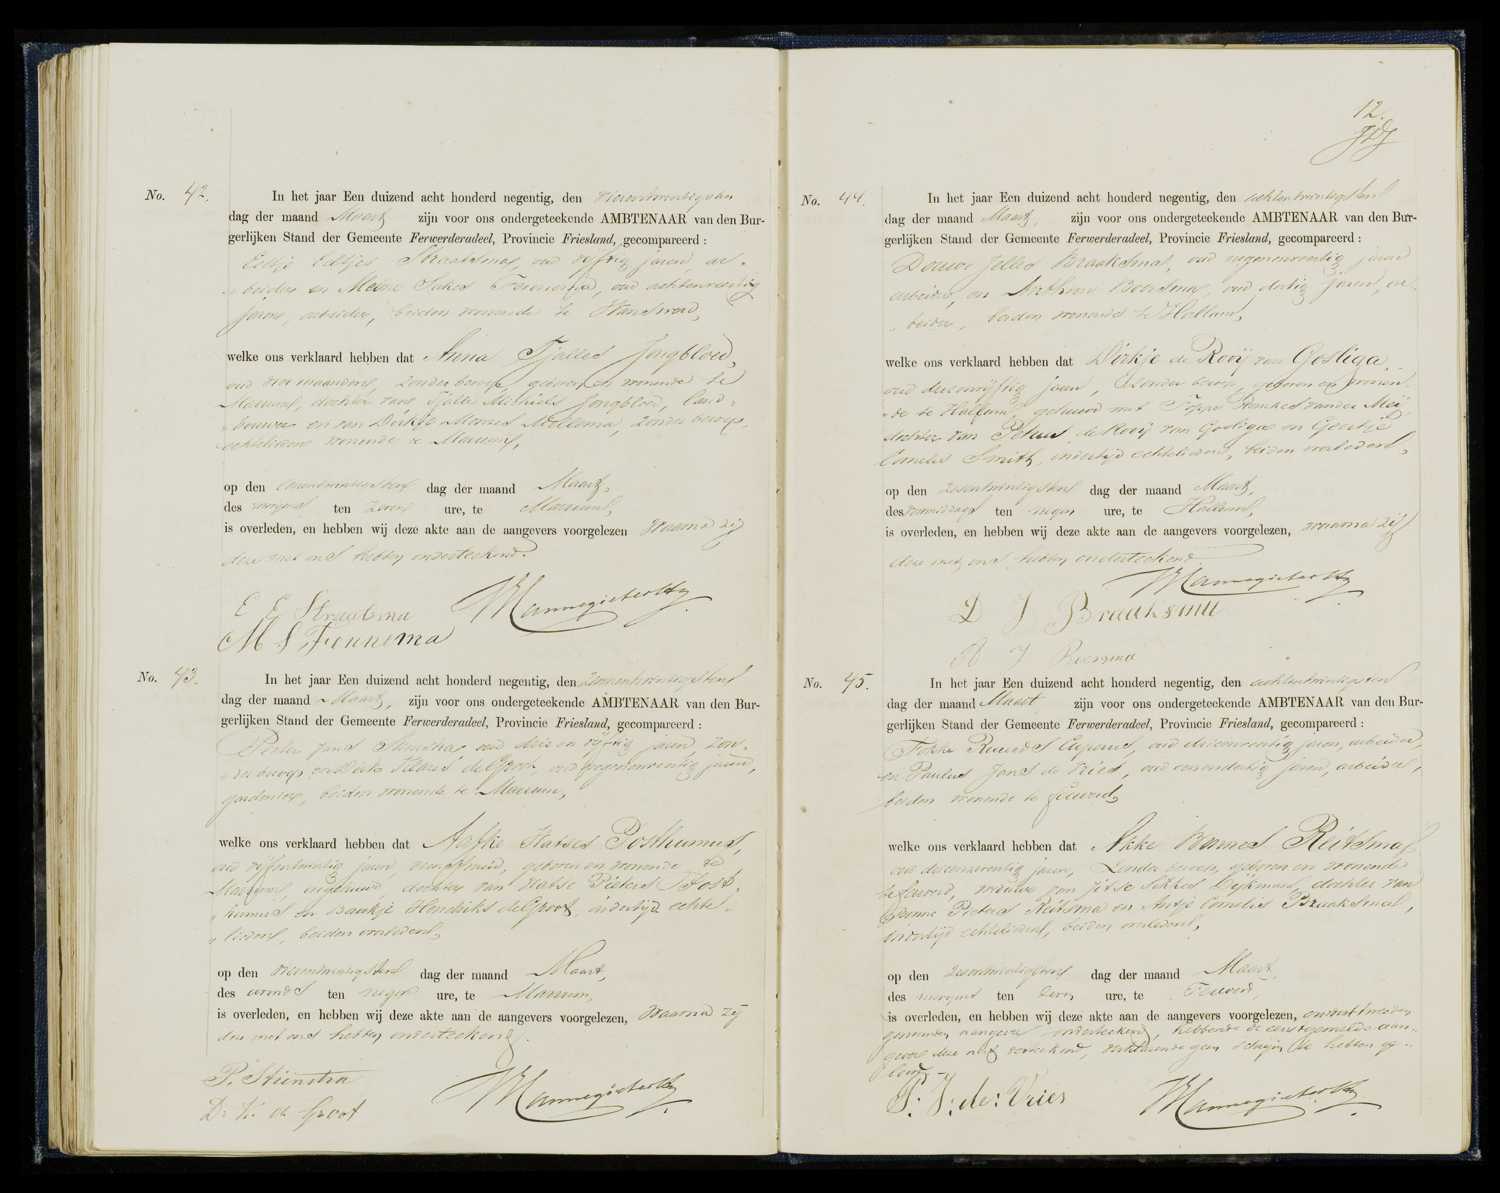 No. 42.
In het jaar Een duizend acht honderd negentig, den vierentwintigsten
dag der maand Maart zijn voor ons ondergeteekende AMBTENAAR van den Bur-
gerlijken Stand der Gemeente Ferwerderadeel, Provincie Friesland, gecompareerd:
Eeltje Eeltjes Straatsma, oud vijftig jaren, ar-
beider en Meine Fennema, oud achtenveertig
jaren, arbeider, beiden wonende te
welke ons verklaard hebben dat Anna Tjalles Jongbloed,
oud vier maanden, zonder beroep, geboren en wonende te
Marrum, dochter van Tjalle Michiels Jongbloed, land-
bouwer en van Dirkje zonder beroep,
echtelieden wonende te Marrum,
op den dag der maand Maart,
des morgens ten zeven ure, te Marrum,
is overleden, en hebben wij deze akte aan de aangevers voorgelezen waarna zij
deze met ons hebben onderteekend.
E E Straatsma
M S Fennema
No. 43.
In het jaar Een duizend acht honderd negentig, den
dag der maand Maart, zijn voor ons ondergeteekende AMBTENAAR van den Bur-
gerlijken Stand der Gemeente Ferwerderadeel, Provincie Friesland, gecompareerd:
Pieter Jans Stienstra oud drie en vijftig jaren, zon-
der beroep, en Klases de Groot, oud negenenveertig jaren,
gardenier, beiden wonende te Marrum,
welke ons verklaard hebben dat Aafke Hatses Posthumus,
oud vijfentwintig jaren, geboren en wonende te
Marrum, ongehuwd, dochter van Hatse Pieters Post-
humus en Baukje Hendriks de Groot, indertijd echte-
lieden, beiden overleden,
op den vierentwintigsten dag der maand Maart,
des avonds ten negen ure, te Marrum,
is overleden, en hebben wij deze akte aan de aangevers voorgelezen, waarna zij
deze met ons hebben onderteekend.
P. Stienstra
D. K. de Groot
12.
No. 44.
In het jaar Een duizend acht honderd negentig, den achtentwintigsten
dag der maand Maart, zijn voor ons ondergeteekende AMBTENAAR van den Bur-
gerlijken Stand der Gemeente Ferwerderadeel, Provincie Friesland, gecompareerd:
Douwe Jelles Braaksma, oud negenenveertig jaren
arbeider, en Beersma, oud dertig jaren, ar-
beider, beiden wonende te Hallum,
welke ons verklaard hebben dat Dirkje de Rooij van Gosliga,
oud jaren, zonder beroep, geboren en wonen-
de te Hallum, gehuwd met Foppe van der Meij,
dochter van Petrus de Rooij van Gosliga en Geertje
Cornelis Smith, indertijd echtelieden, beiden overleden,
op den zesentwintigsten dag der maand Maart,
des voormiddags ten negen ure, te Hallum,
is overleden, en hebben wij deze akte aan de aangevers voorgelezen, waarna zij
deze met ons hebben onderteekend
D J Braaksma
No. 45.
In het jaar Een duizend acht honderd negentig, den achtentwintigsten
dag der maand Maart zijn voor ons ondergeteekende AMBTENAAR van den Bur-
gerlijken Stand der Gemeente Ferwerderadeel, Provincie Friesland, gecompareerd:
Fokke Ruurds oud drieenveertig jaren, arbeider,
en Paulus Jans de Vries, oud eenendertig jaren, arbeider,
beiden wonende te
welke ons verklaard hebben dat Akke Reitsma
oud jaren, zonder beroep, geboren en wonende
te weduwe van Sikkes Dijkman, dochter van
Pieters Reitsma en Antje Cornelis Braaksma,
indertijd echtelieden, beiden overleden,
op den zesentwintigsten dag der maand Maart,
des morgens ten ure, te
is overleden, en hebben wij deze akte aan de aangevers voorgelezen,
aangever onderteekend, hebbende de eerstgemelde aan-
gever deze niet verklarende geen schrijven te hebben ge-
leerd.
P. J. de Vries